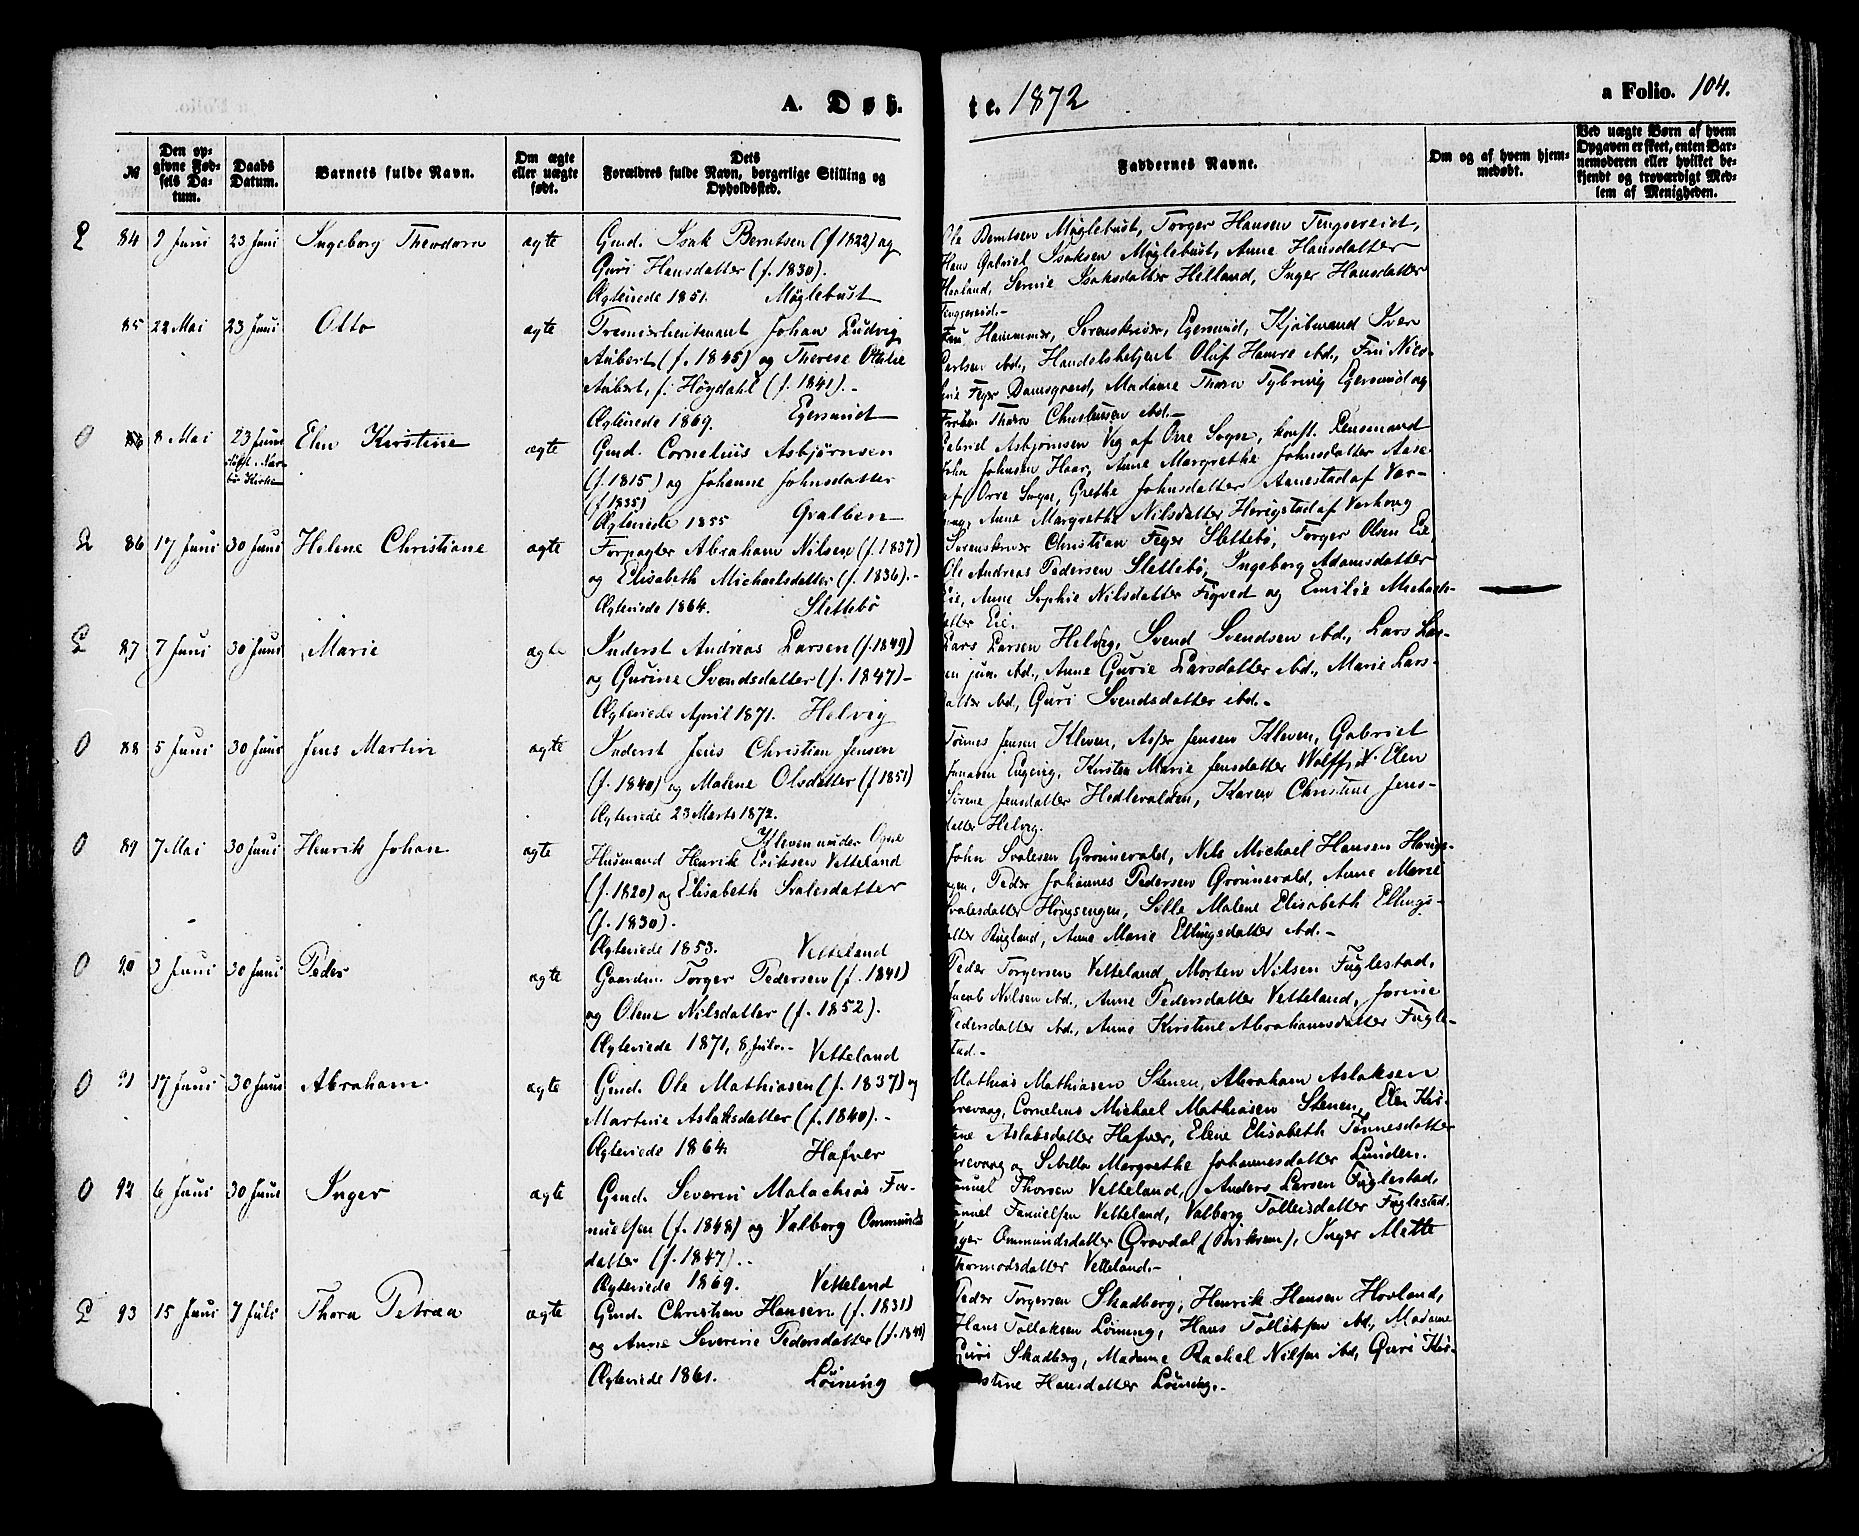 A. Døb.
te. 1872
a Folio. 104.
№
Den op-
givne Fød-
sels Da-
tum.
Daabs
Datum.
Barnets fulde Navn.
Om ægte
eller uægte
født.
Dets
Forældres fulde Navn, borgerlige Stilling og
Opholdssted.
Faddernes Navne.
Om og af hvem hjem-
medøbt.
Ved uægte Børn af hvem
Opgaven er skeet, enten Bar-
nemoderen eller hvilket be-
kjendt og troværdigt Med-
lem af Menigheden.
84 9 Juni 23 Juni Ingeborg Theodora ægte Gmd. Isak Berntsen (f 1822) og
Guri Hansdatter (f. 1830).
Ægteviede 1851. Møglebust
Ole Berntsen Møglebust, Torger Hansen Tengsereid,
Hans Gabriel Isaksen Møglebust, Anne Hansdatter
Hovland, Serine Isaksdatter Helland, Inger Hansdatter
Tengsereid.-
85 22 Mai 23 Juni Otto ægte Premierlieutenant Johan Ludvig
Aubert (f. 1845) og Therese Othilie
Aubert, f. Høydahl (f. 1841).-
Ægteviede 1869. Egersund
Fru Hammer, Sorenskriver, Egersund, Kjøbmand Iver
Carlsen ibd., Handelsbetjent Oluf Hamre ibd., Fru Nico-
line Feyer Damsgaard, Madame Thora Tybring Egersund og
Frøken Thora Christensen ibd.-
8 Mai 23 Juni Elen Kirstine ægte Gmd. Cornelius Asbjørnsen
(f. 1815) og Johanne Johnsdatter
(f 1835)
Ægteviede 1855 Gralben
Gabriel Asbjørnsen Veg af Orre Sogn, konst. Lensmand
John Johnsen Haar, Anne Margrethe Johnsdatter Aase
af Orre Sogn, Grethe Johnsdatter Annestad af Var-
haug, Anne Margrethe Nilsdatter Herigstad af Varhoug
86 17 Juni 30 Juni Helene Christiane ægte Forpagter Abraham Nilsen (f. 1837)
og Elisabeth Michaelsdatter (f. 1836).-
Ægteviede 1864. Slettebø
Sorenskriver Christian Feyer Slettebø, Torger Olsen Eie,
Ole Andreas Pedersen Slettebø, Ingeborg Adamsdatter
Eie, Anne Sophie Nilsdatter Figved og Emilie Michaels-
datter Eie.
87 7 Juni 30 Juni Marie ægte Inderst Andreas Larsen (f. 1849)
og Gurine Svendsdatter (f. 1847)-
Ægteviede April 1871. Helvig
Lars Larsen Helvig, Svend Svendsen ibd., Lars Lar-
sen jun. ibd., Anne Gurie Larsdatter ibd., Marie Lars-
datter ibd., Guri Svendsdatter ibd.-
88 5 Juni 30 Juni Jens Martin ægte Inderst Jens Christian Jensen
(f. 1840) og Malene Olsdatter (f 1851)
Ægteviede 23 Marts 1872.
Kleven under Ogne
Tønnes Jensen Kleven, Asser Jensen Kleven, Gabriel
Kirsten Marie Jensdatter Elen
Sørine Jensdatter Karen Christine Jens-
datter Helvig.
89 7 Mai 30 Juni Henrik Johan ægte Husmand Henrik Eriksen Vetteland
(f. 1820) og Elisabeth Svalesdatter
(f. 1830).
Ægteviede 1853. Vetteland
John Svalesen Grønnevald, Nils Michael Hansen Høngs-
engen, Peder Johannes Pedersen Grønnevald, Anne Marie
Svalesdatter Høngsengen, Sille Malene Elisabeth Ellings-
datter Rugland, Anne Marie Ellingsdatter ibd.-
90 3 Juni 30 Juni Peder ægte Gaardm. Torger Pedersen (f. 1841)
og Olene Nilsdatter (f. 1852).
Ægteviede 1871, 8 Julv.- Vetteland
Peder Torgersen Vetteland, Morten Nilsen Fuglestad,
Jacob Nilsen ibd., Anne Pedersdatter Vetteland, Jorine
Pedersdatter ibd., Anne Kirstine Abrahamsdatter Fugle-
stad.-
91 17 Juni 30 Juni Abraham. ægte Gmd. Ole Mathiasen (f. 1837) og
Martine Aslaksdatter (f. 1840).-
Ægteviede 1864. Hafver
Mathias Mathiasen Stenen, Abraham Aslaksen
Sirevaag, Cornelius Michael Mathiasen Stenen, Elen Kir-
stine Aslaksdatter Hafver, Elene Elisabeth Tønnesdatter
Sirevaag og Sibilla Margrethe Johannesdatter Lunden.
92 6 Juni 30 Juni Inger ægte Gmd. Severin Malachias Fa-
nuelsen (f. 1848) og Valborg Ommunds
datter (f. 1847)..
Ægteviede 1869. Vetteland
Fanuel Thorsen Vetteland, Anders Larsen Fuglestad,
Daniel Fanuelsen Vetteland, Valborg Tollevsdatter Fuglestad,
Inger Ommundsdatter Grøvdal (Birkrem), Inger Mette
Thormodsdatter Vetteland.-
93 15 Juni 7 Juli Thora Petraa ægte Gmd. Christian Hansen (f. 1831)
og Anne Severine Pedersdatter (f. 1840)
Ægteviede 1861. Løining
Peder Torgersen Skadberg, Henrik Hansen Hovland,
Hans Tollaksen Løining, Hans Tollefsen ibd., Madame
Guri Skadberg, Madame Rachel Nilsen ibd., Guri Kir-
stine Hansdatter Løining.-